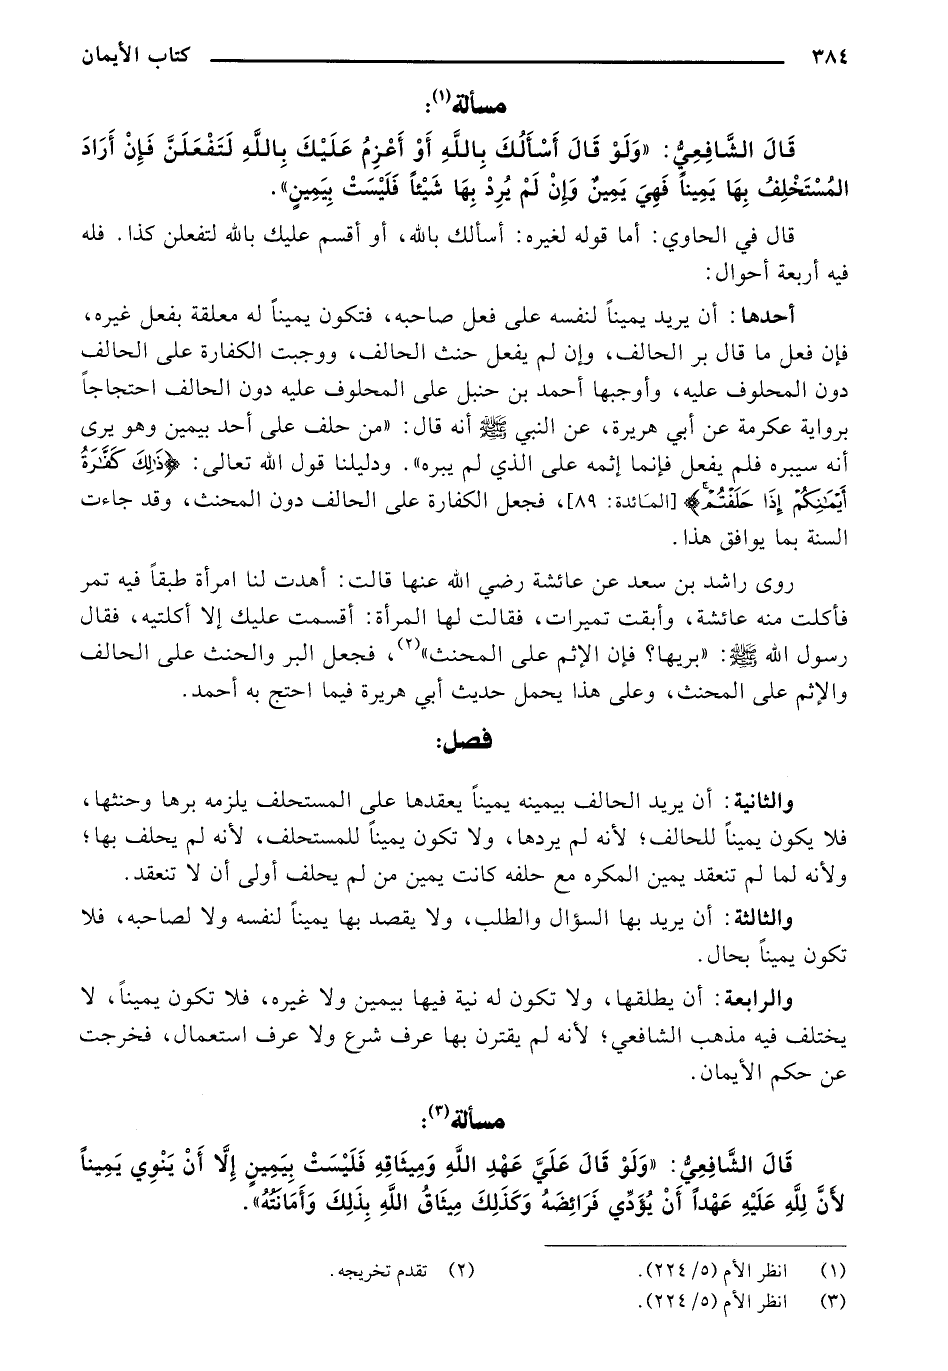 ٣٨٤ كتاب الأيمان
مسألة(١):
قَالَ الشَّافِعِيُّ: «وَلَوْ قَالَ أَسْأَلُكَ بِاللَّهِ أَوْ أَعْزِمُ عَلَيْكَ بِاللَّهِ لَتَفْعَلَنَّ فَإِنْ أَرَادَ
المُسْتَحْلِفُ بِهَا يَمِيناً فَهِيَ يَمِينٌ وَإِنْ لَمْ يُرِدْ بِهَا شَيْئاً فَلَيْسَتْ بِيَمِينٍ».
قال في الحاوي: أما قوله لغيره: أسألك بالله، أو أقسم عليك بالله لتفعلن كذا. فله
فيه أربعة أحوال:
أحدها: أن يريد يميناً لنفسه على فعل صاحبه، فتكون يميناً له معلقة بفعل غيره،
فإن فعل ما قال بر الحالف، وإن لم يفعل حنث الحالف، ووجبت الكفارة على الحالف
دون المحلوف عليه، وأوجبها أحمد بن حنبل على المحلوف عليه دون الحالف احتجاجاً
برواية عكرمة عن أبي هريرة، عن النبي ﷺ أنه قال: «من حلف على أحد بيمين وهو يرى
أنه سيبره فلم يفعل فإنما إثمه على الذي لم يبره». ودليلنا قول الله تعالى: ﴿ذَٰلِكَ كَفَّٰرَةُ
أَيْمَٰنِكُمْ إِذَا حَلَفْتُمْ﴾ [المَائدة: ٨٩]، فجعل الكفارة على الحالف دون المحنث، وقد جاءت
السنة بما يوافق هذا.
روى راشد بن سعد عن عائشة رضي الله عنها قالت: أهدت لنا امرأة طبقاً فيه تمر
فأكلت منه عائشة، وأبقت تميرات، فقالت لها المرأة: أقسمت عليك إلا أكلتيه، فقال
رسول الله ﷺ: «بريها؟ فإن الإثم على المحنث»(٢)، فجعل البر والحنث على الحالف
والإثم على المحنث، وعلى هذا يحمل حديث أبي هريرة فيما احتج به أحمد.
فصل:
والثانية: أن يريد الحالف بيمينه يميناً يعقدها على المستحلف يلزمه برها وحنثها،
فلا يكون يميناً للحالف؛ لأنه لم يردها، ولا تكون يميناً للمستحلف، لأنه لم يحلف بها؛
ولأنه لما لم تنعقد يمين المكره مع حلفه كانت يمين من لم يحلف أولى أن لا تنعقد.
والثالثة: أن يريد بها السؤال والطلب، ولا يقصد بها يميناً لنفسه ولا لصاحبه، فلا
تكون يميناً بحال.
والرابعة: أن يطلقها، ولا تكون له نية فيها بيمين ولا غيره، فلا تكون يميناً، لا
يختلف فيه مذهب الشافعي؛ لأنه لم يقترن بها عرف شرع ولا عرف استعمال، فخرجت
عن حكم الأيمان.
مسألة(٣):
قَالَ الشَّافِعِيُّ: «وَلَوْ قَالَ عَلَيَّ عَهْدِ اللَّهِ وَمِيثَاقِهِ فَلَيْسَتْ بِيَمِينٍ إِلَّا أَنْ يَنْوِي يَمِيناً
لأَنَّ لِلَّهِ عَلَيْهِ عَهْداً أَنْ يُؤَدِّي فَرَائِضَهُ وَكَذَلِكَ مِيثَاقُ اللَّهِ بِذَلِكَ وَأَمَانَتُهُ».
(١) انظر الأم (٢٢٤/٥). (٢) تقدم تخريجه.
(٣) انظر الأم (٢٢٤/٥).